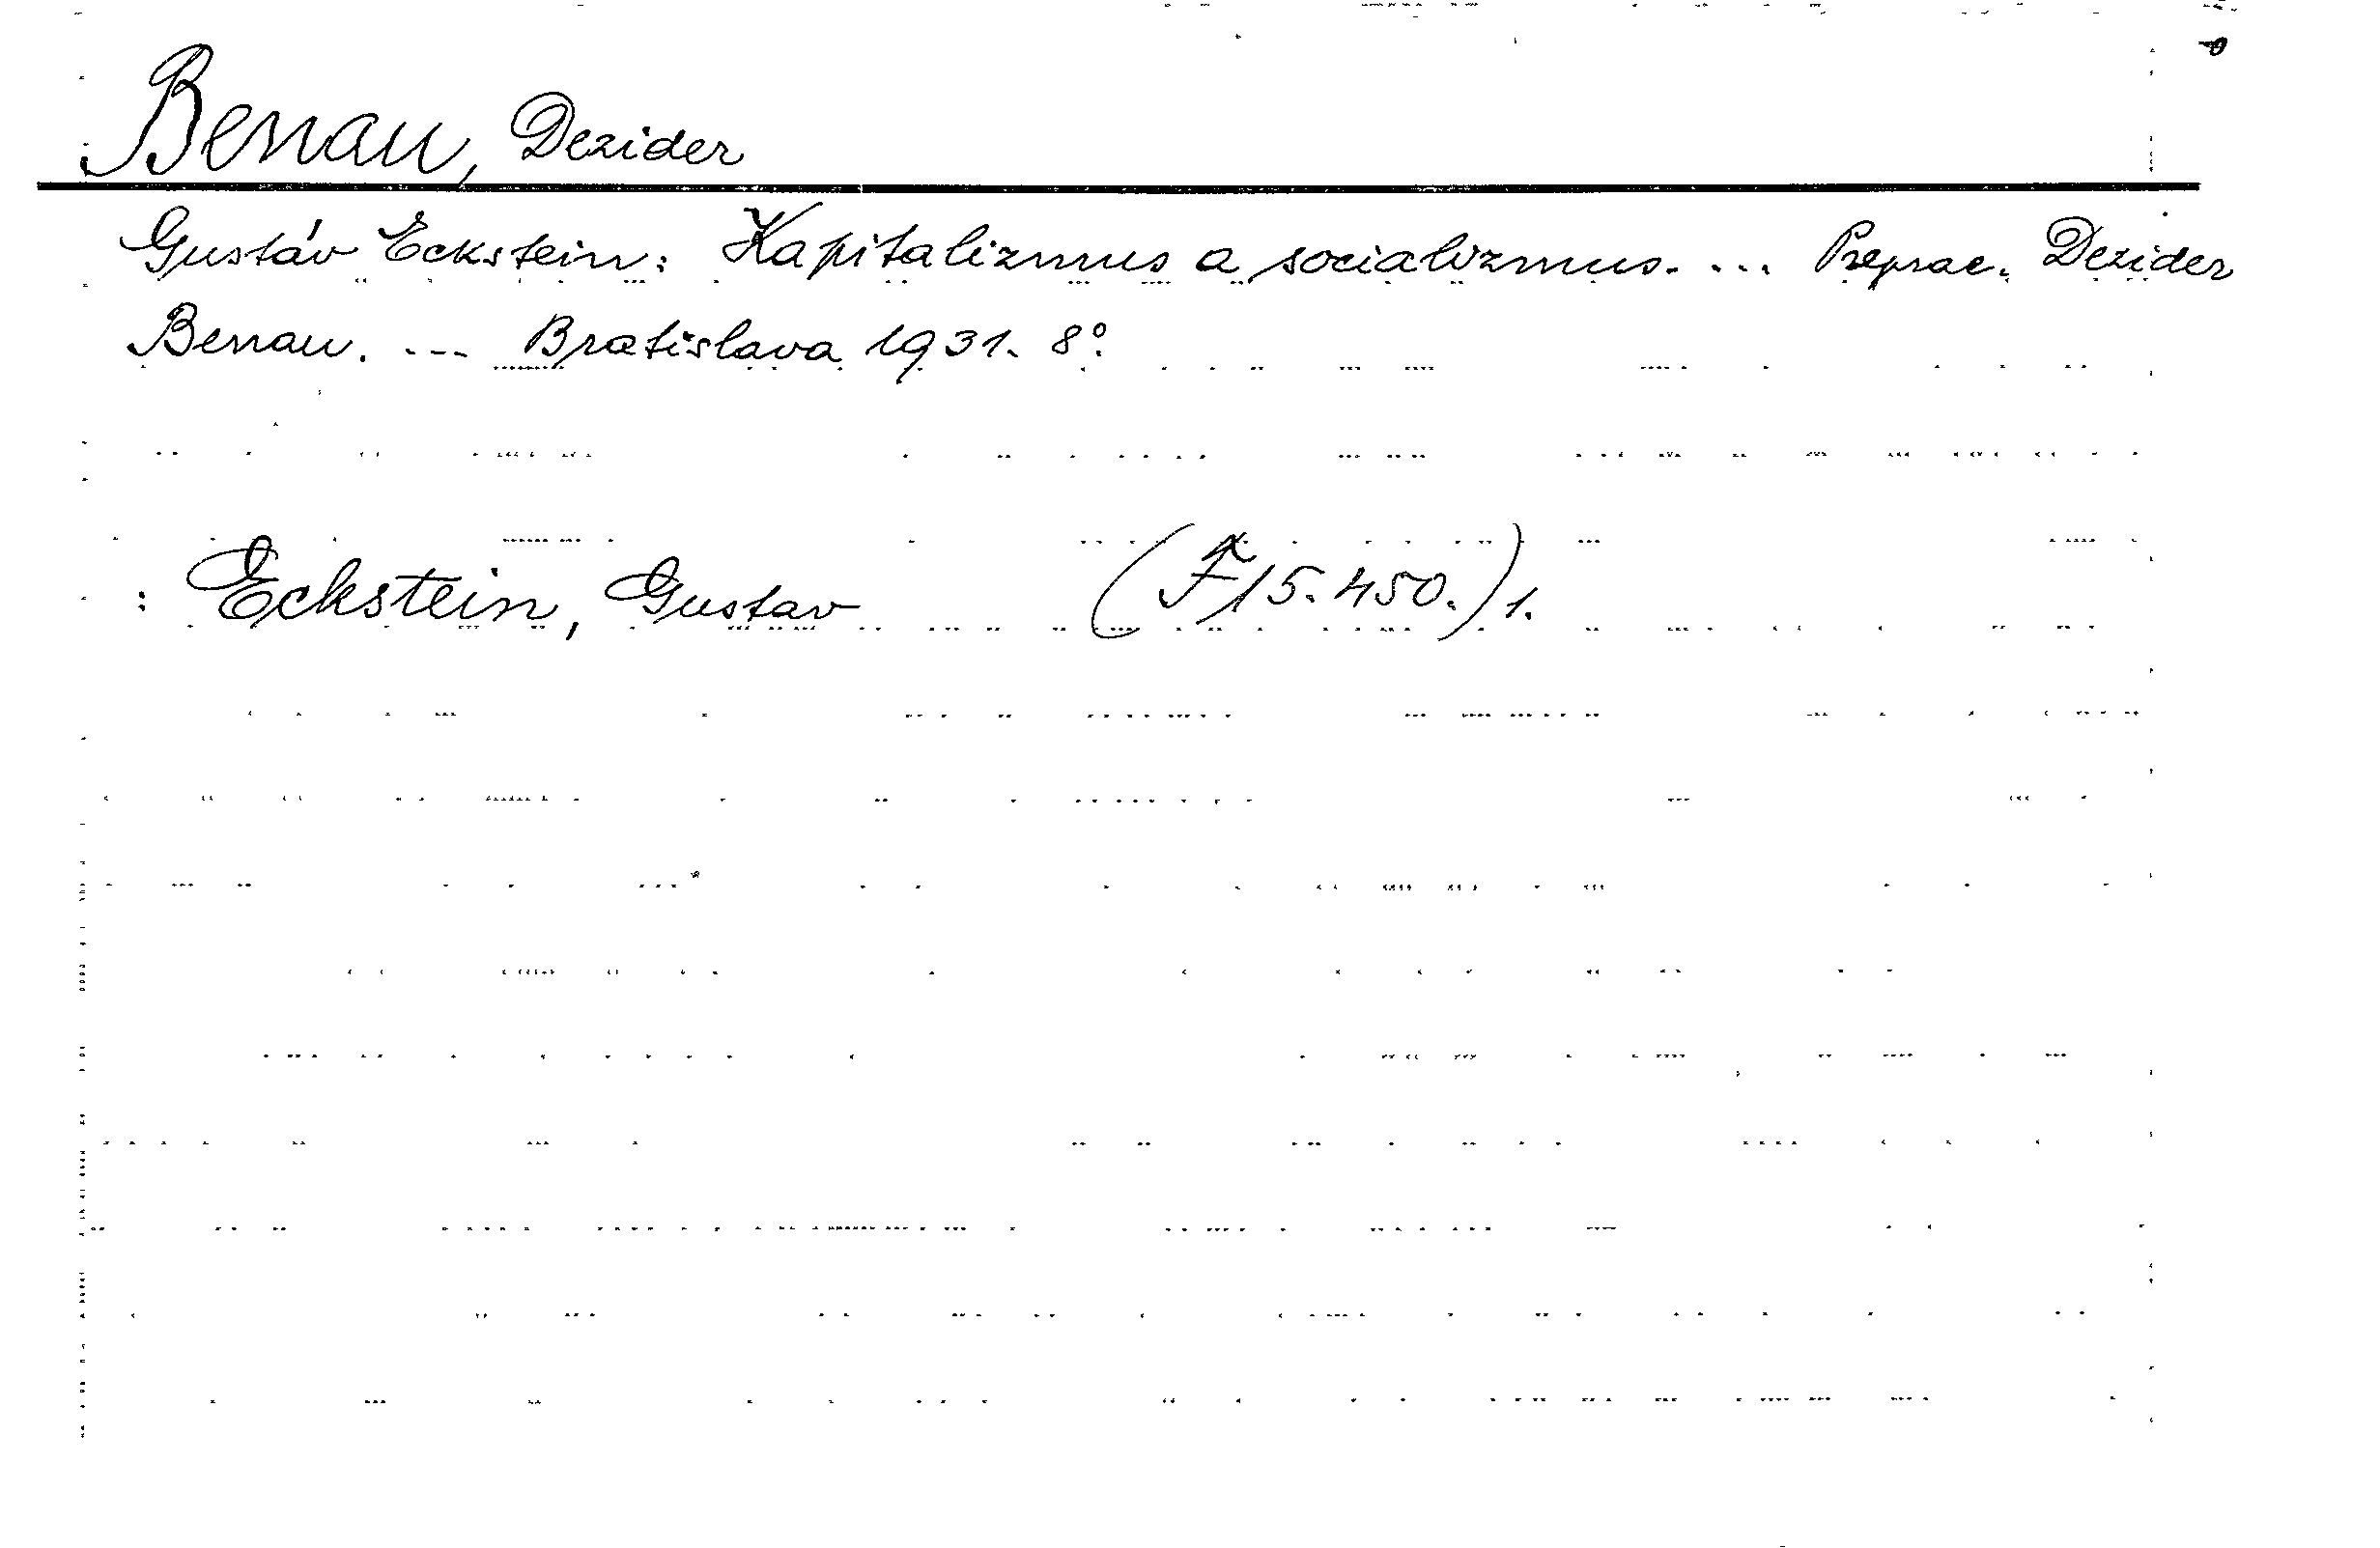 Benau, Dezider
Gustáv Eckstein: Kapitalizmus a socializmus. ... Preprac. Dezider
Benau. --- Bratislava 1931. 8°.
: Eckstein, Gustav (F 15.450.) 1.